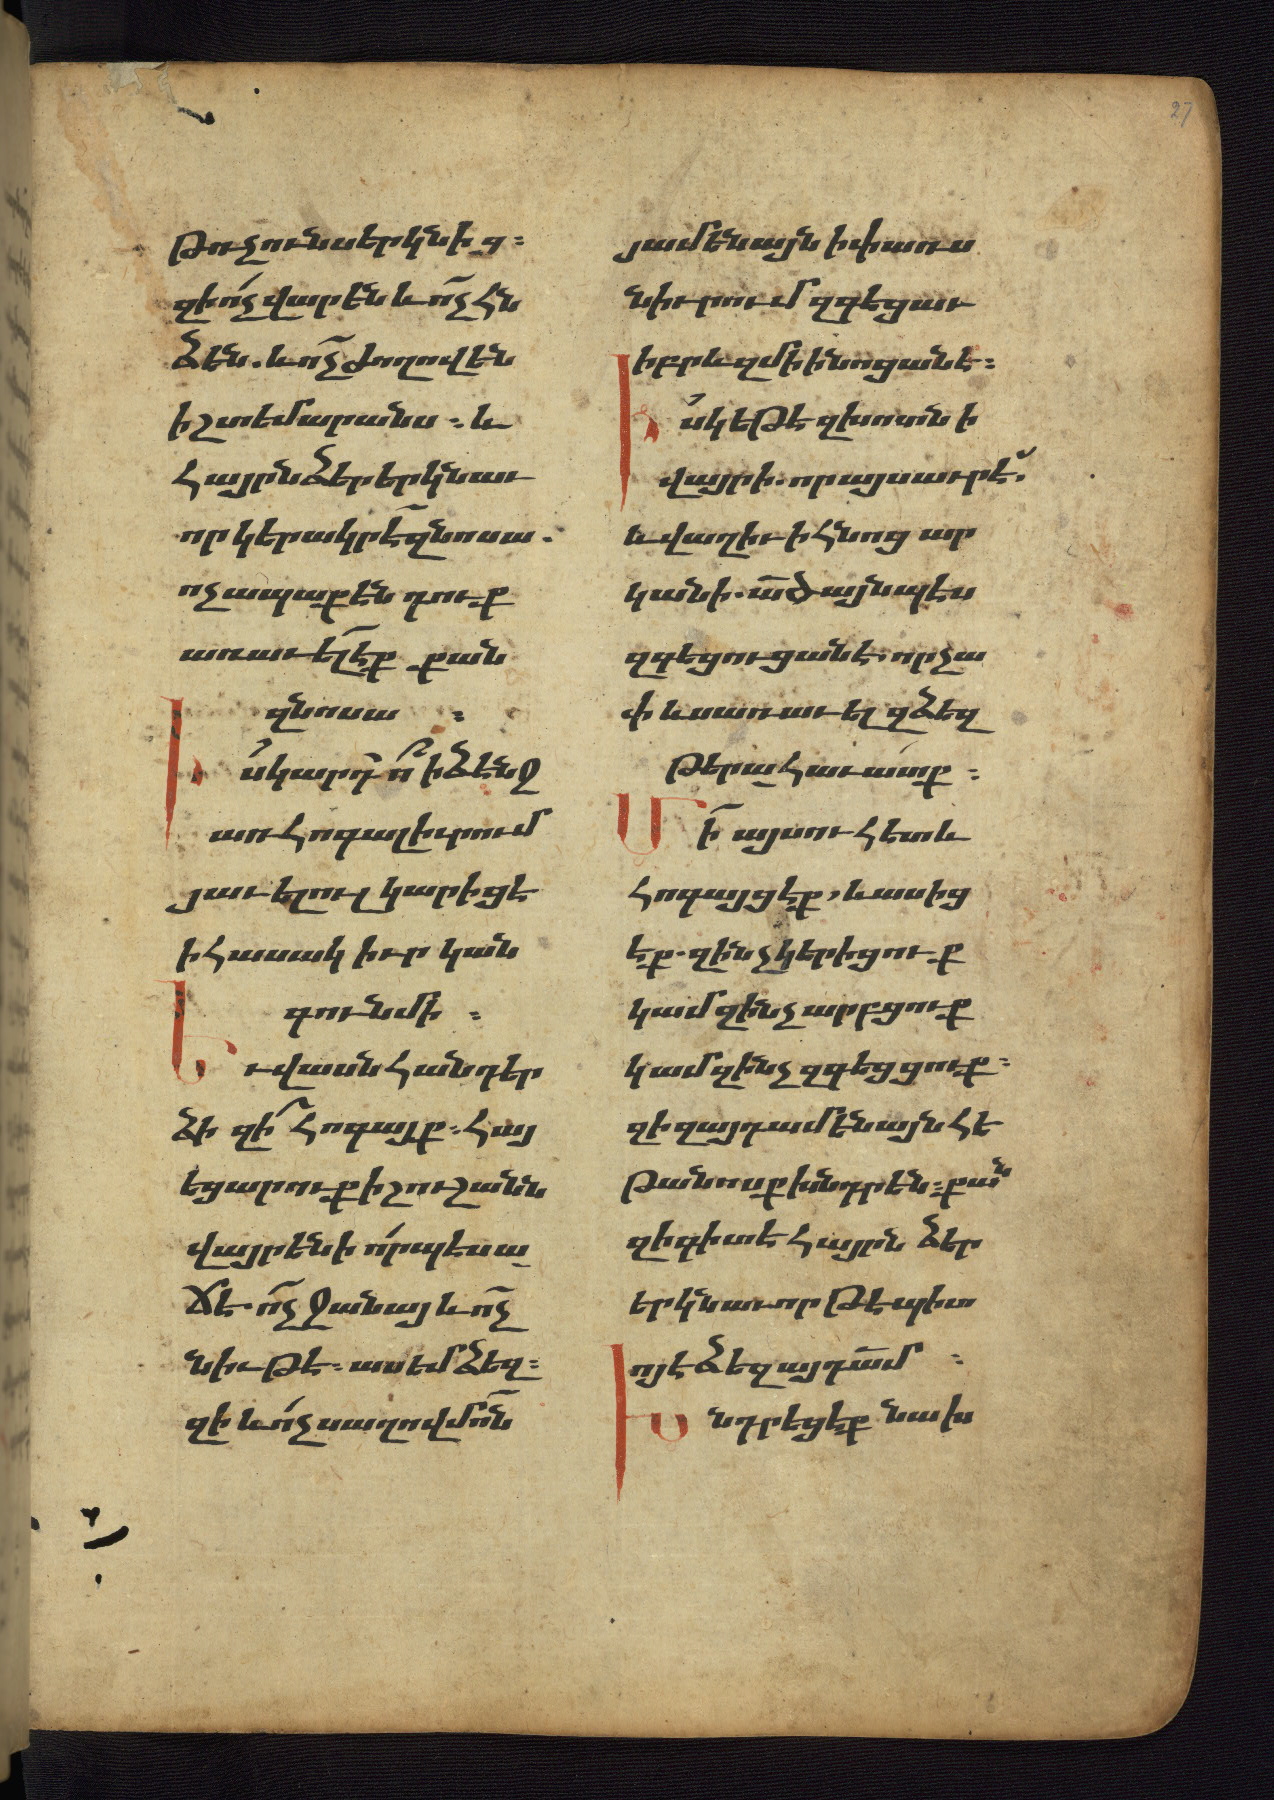 27
թռչունսերկնից։
զիո՛չ վարեն և ո՛չ հն
ձեն. և ո՛չ ժողովեն
ի շտեմարանս։ և
հայրն ձեր երկնաւ
որ կերակրէ զնոսա.
ոչ ապաքէն դուք
առաւել էք քան
զնոսա։
Իսկ արդ ո՞ ի ձէնջ
առ հոգալ իւրում
յաւելուլ կարիցէ
ի հասակ իւր կան
գուն մի։
Եւ վասն հանդեր
ձի զի՞ հոգայք։ հայ
եցարուք ի շուշանն
վայրենի որպէս ա
ճէ. ո՛չ ջանայ և ո՛չ
նիւթէ։ ասեմ ձեզ։
զի և ո՛չ սաղովմոն
յամենայն ի փառս
նիւրում զգեցաւ
իբրև զմի ի նոցանէ։
Իսկ եթէ զխոտն ի
վայրի. որ այսաւր է.
և վաղիւ ի հնոց ար
կանի. ած այնպէս
զգեցուցանէ. որչա
փ ևս առաւել զձեզ
թերահաւատք։
Մի՛ այսուհետև
հոգայցէք, և ասից
էք. զինչ կերիցուք
կամ զինչ արբցուք
կամ զինչ զգեցցուք։
զի զայդ ամենայն հե
թանոսք խնդրեն։ քան
զի գիտէ հայրն ձեր
երկնաւոր թէ պիտ
ոյ է ձեզ այդ ամ։
Խնդրեցէք նախ